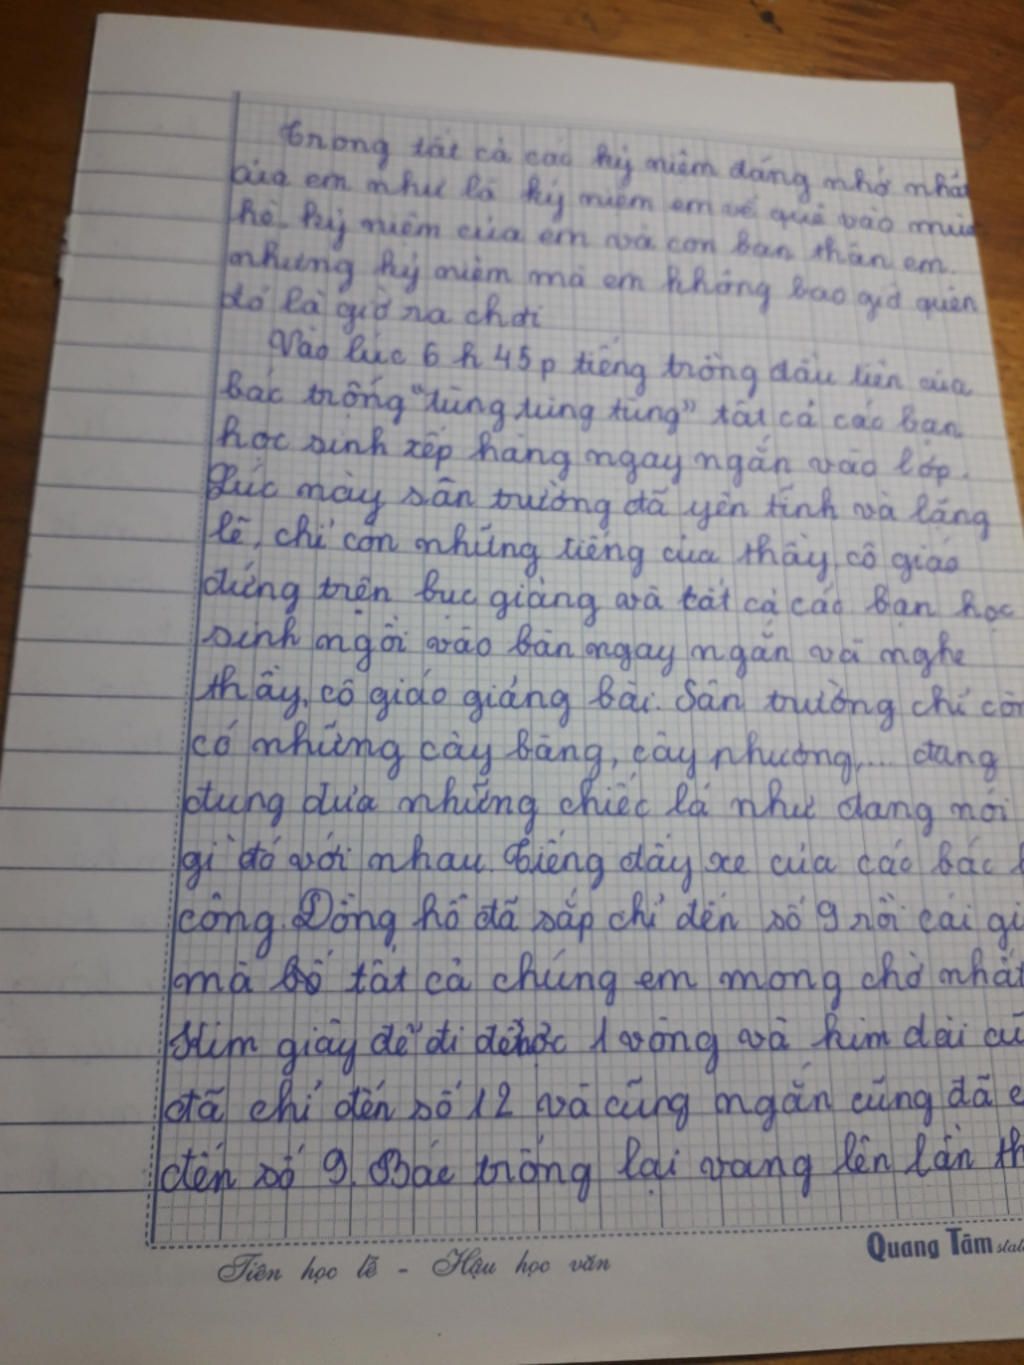 Trong tất cả các kỷ niệm đáng nhớ nhất
của em như là kỷ niệm em về quê vào mùa
hè, kỷ niệm của em và con bạn thân em.
nhưng kỷ niệm mà em không bao giờ quên
đó là giờ ra chơi
Vào lúc 6h45p tiếng trống đầu tiên của
bác trống "tùng tùng tùng" tất cả các bạn
học sinh xếp hàng ngay ngắn vào lớp.
Lúc này sân trường đã yên tĩnh và lặng
lẽ, chỉ còn những tiếng của thầy, cô giáo
đứng trên bục giảng và tất cả các bạn học
sinh ngồi vào bàn ngay ngắn và nghe
thầy, cô giáo giảng bài. Sân trường chỉ còn
có những cây bàng, cây phượng,... đang
đung đưa những chiếc lá như đang nói
gì đó với nhau. Tiếng đẩy xe của các bác
công. Đồng hồ đã sắp chỉ đến số 9 rồi cái
mà tất cả chúng em mong chờ nhất
Kim giây để đi được 1 vòng và kim dài
đã chỉ đến số 12 và cũng ngắn cũng đã
đến số 9. Bác trống lại vang lên lần
Tiên học lễ - Hậu học văn
Quang Tâm